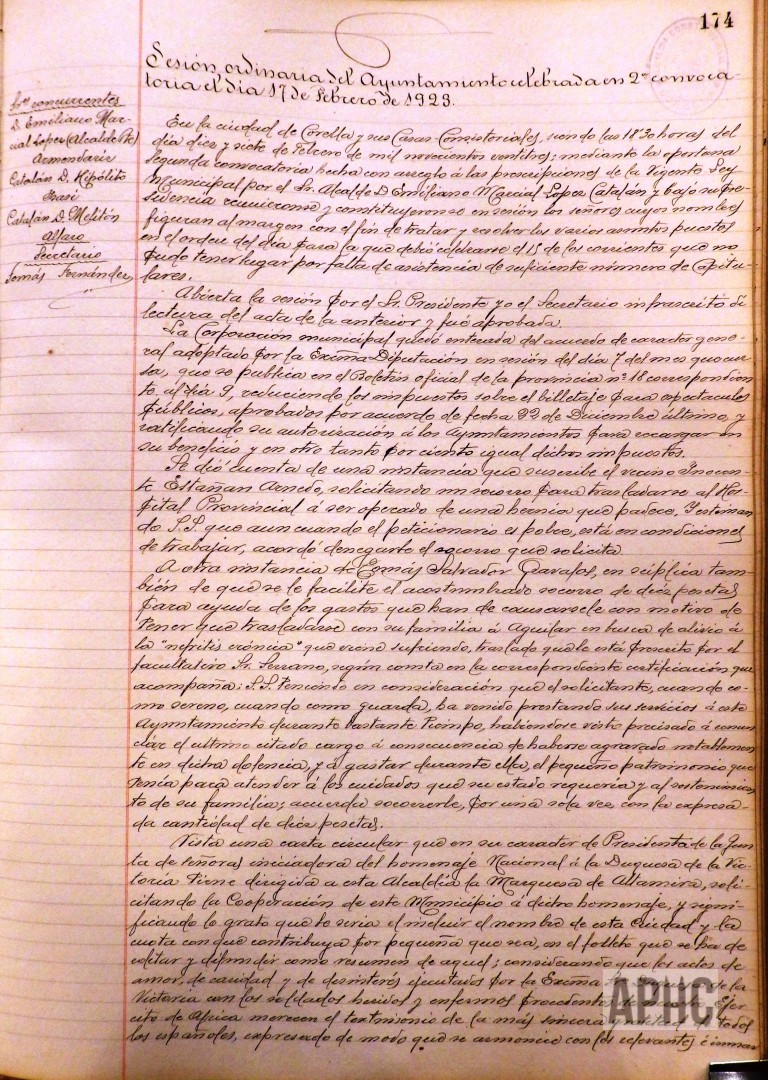 174
Sesión ordinaria del Ayuntamiento celebrada en 2ª convoca-
toria el día 17 de Febrero de 1923.
Sres concurrentes
D. Emiliano Mar-
cial Lopez (Alcalde Pte)
Armendariz
Catalán D. Hipólito
Catalán D. Melitón
Alfaro
Secretario
Tomás Fernández
En la ciudad de Corella y sus Casas Consistoriales, siendo las 18'30 horas del
día diez y siete de Febrero de mil novecientos veintitres; mediante la oportuna
segunda convocatoria hecha con arreglo á las prescripciones de la Vigente Ley
Municipal por el Sr. Alcalde D. Emiliano Marcial Lopez Catalán y bajo su pre-
sidencia reunieronse y constituyeronse en sesión los señores cuyos nombres
figuran al margen con el fin de tratar y resolver los varios asuntos puestos
en el orden del día para la que debió celebrarse el 15 de los corrientes que no
pudo tener lugar por falta de asistencia de suficiente número de Capitu-
lares.
Abierta la sesión por el Sr. Presidente yo el Secretario infrascrito di
lectura del acta de la anterior y fué aprobada.
La Corporación municipal quedó enterada del acuerdo de caracter gene-
ral adoptado por la Excma Diputación en sesión del día 7 del mes que cur-
sa, que se publica en el Boletín oficial de la provincia nº 18 correspondien-
te al día 9, reduciendo los impuestos sobre el billetaje para espectaculos
públicos, aprobados por acuerdo de fecha 22 de Diciembre último, y
ratificando su autorización á los Ayuntamientos para recargar en
su beneficio y en otro tanto por ciento igual dichos impuestos.
Se dió cuenta de una instancia que suscribe el vecino Inocen-
te Estañan Arnedo, solicitando un socorro para trasladarse al Hos-
pital Provincial á ser operado de una hernia que padece, Y estiman-
do S.S. que aun cuando el peticionario es pobre, está en condiciones
de trabajar, acordó denegarle el socorro que solicita.
A otra instancia de Tomás Salvador Garafos, en súplica tam-
bién de que se le facilite el acostumbrado socorro de diez pesetas
para ayuda de los gastos que han de causarsele con motivo de
tener que trasladarse con su familia á Aguilar en busca de alivio á
la "nefritis crónica" que viene sufriendo, traslado que le está prescrito por el
facultativo Sr. Serrano, según consta en la correspondiente certificación que
acompaña: S.S. teniendo en consideración que el solicitante, cuando co-
mo sereno, cuando como guarda, ha venido prestando sus servicios á este
Ayuntamiento durante bastante tiempo, habiendose visto precisado á renun-
ciar el ultimo citado cargo á consecuencia de haberse agravado notablemen-
te en dicha dolencia, y á gastar durante ella, el pequeño patrimonio que
tenía para atender á los cuidados que su estado requeria y al sostenimien-
to de su familia; acuerda socorrerle, por una sola vez con la expresa-
da cantidad de diez pesetas.
Vista una carta circular que en su caracter de Presidenta de la Jun-
ta de señoras iniciadora del homenaje Nacional á la Duquesa de la Vic-
toria tiene dirigida a esta Alcaldía la Marquesa de Altamira, soli-
citando la Cooperación de este Municipio á dicho homenaje, y signi-
ficando lo grato que le seria el incluir el nombre de esta Ciudad y la
cuota con que contribuya por pequeña que sea, en el folleto que se ha de
editar y difundir como resumen de aquel; considerando que los actos de
amor, de caridad y de desinterés ejecutados por la Excma de la
Victoria con los soldados heridos y enfermos procedentes Ejer-
cito de Africa merecen el testimonio de la más sincera todos
los españoles, expresado de modo que se armonice con los relevantes é inmar-
APHC